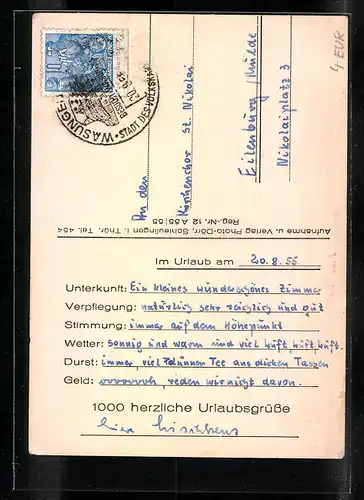 4 EUR
WASUNGEN • STADT DES VOLKSKAR
20.8.55
10
An den
Kirchenchor St. Nikolai
Eilenburg / Mulde
Nikolaiplatz 3
Aufnahme u. Verlag Photo-Dörr, Schleusingen i. Thür. Tel. 454
Reg.-Nr. 12 A 55/55
Im Urlaub am 20.8.55
Unterkunft: Ein kleines wunderschönes Zimmer
Verpflegung: natürlich sehr reichlich und gut
Stimmung: immer auf dem Höhepunkt
Wetter: sonnig und warm und viel Luft, Luft, Luft.
Durst: immer, viel dünnen Tee aus dicken Tassen
Geld: ooooooh, reden wir nicht davon.
1000 herzliche Urlaubsgrüße